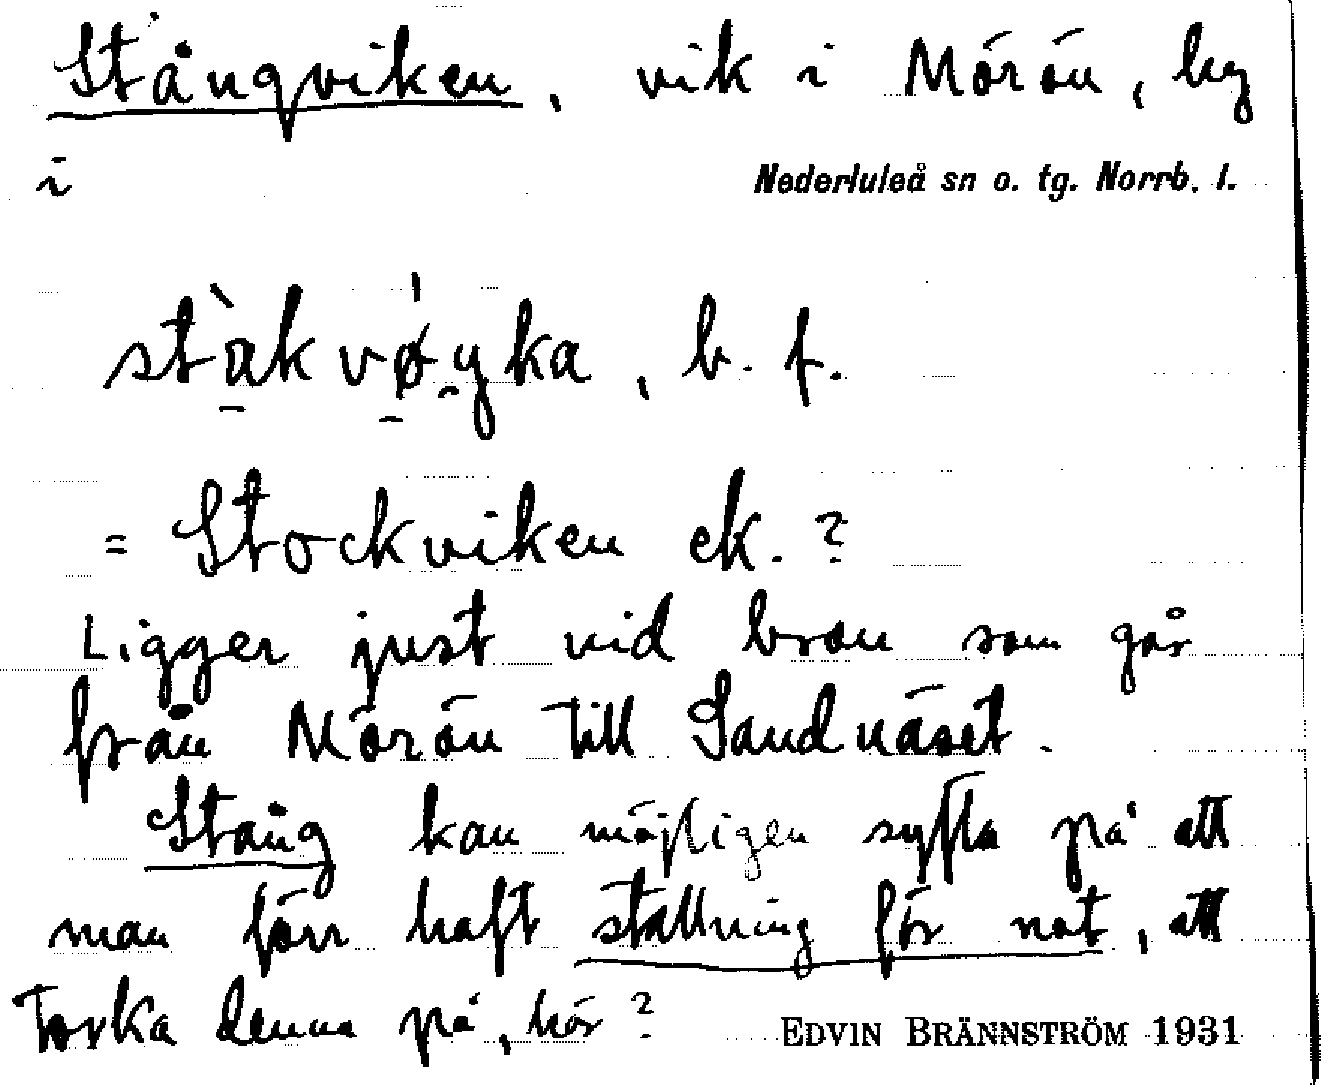 Stångviken, vik i Mörön, by
i Nederluleå sn o. tg. Norrb. l.
stàkvø̀yka, b. f.
= Stockviken ek. ?
Ligger just vid bron som går
från Mörön till Sandnäset.
Stång kan möjligen syfta på att
man förr haft ställning för not, att
torka denna på, här ?
EDVIN BRÄNNSTRÖM 1931